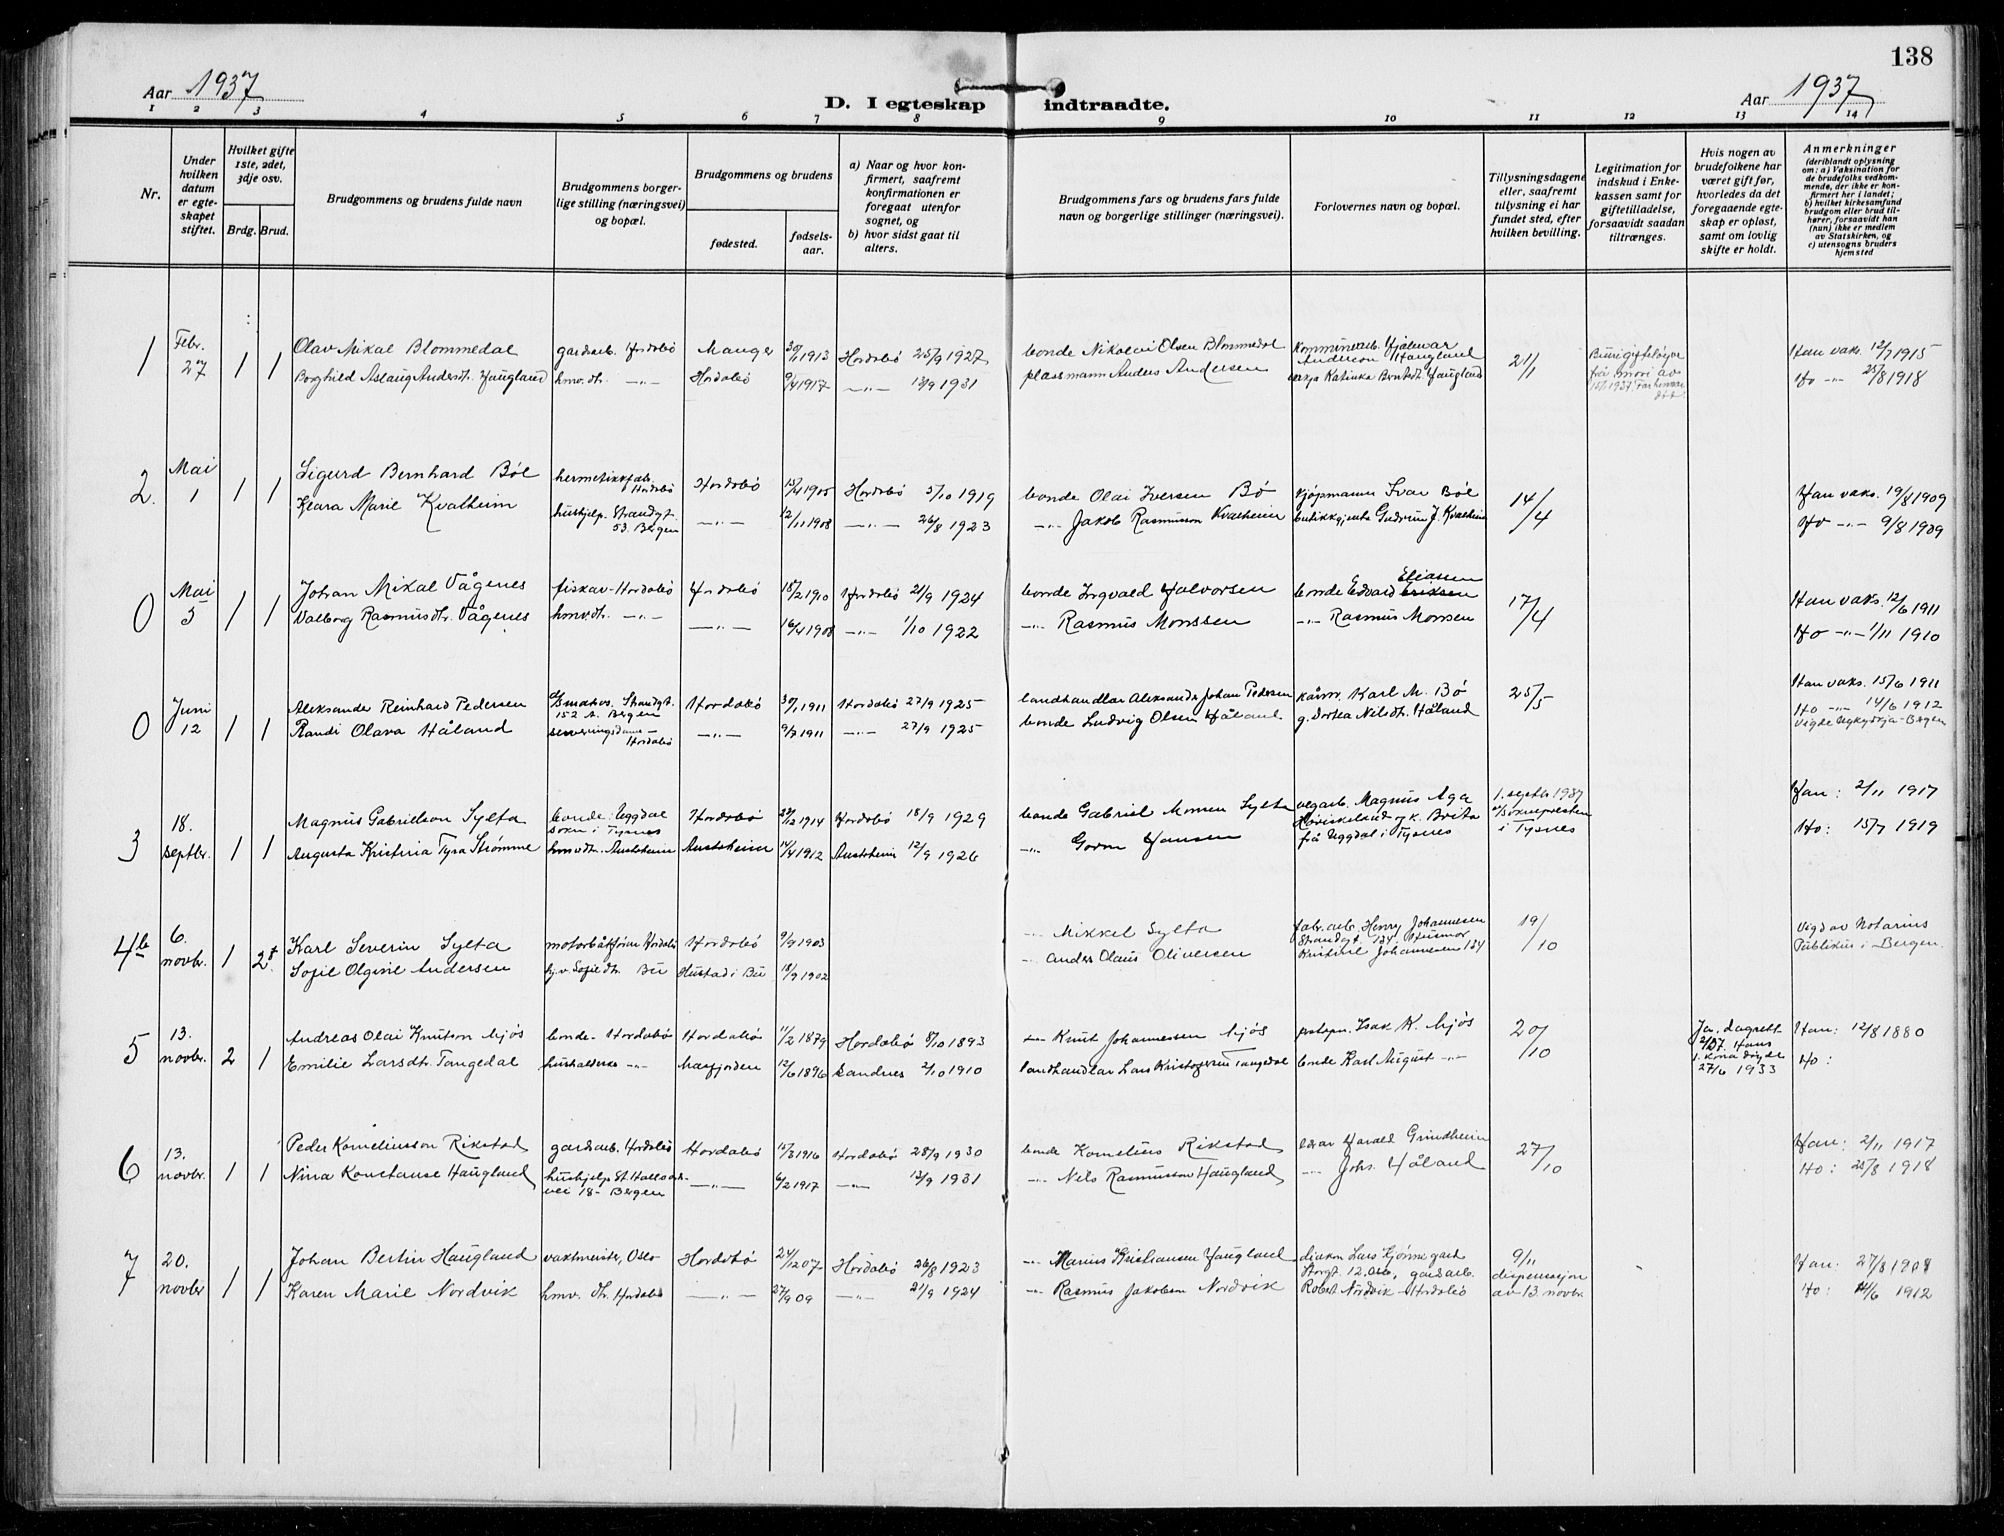 138
Aar 1937
D. I egteskap indtraadte.
Aar 1937
1 2 3 4 5 6 7 8 9 10 11 12 13 14
Nr.
Under hvilken datum er egteskapet stiftet.
Hvilket gifte 1ste, 2det, 3dje osv.
Brdg. Brud.
Brudgommens og brudens fulde navn
Brudgommens borgerlige stilling (næringsvei) og bopæl.
Brudgommens og brudens
fødested.
fødselsaar.
a) Naar og hvor konfirmert, saafremt konfirmationen er foregaat utenfor sognet, og
b) hvor sidst gaat til alters.
Brudgommens fars og brudens fars fulde navn og borgerlige stillinger (næringsvei).
Forlovernes navn og bopæl.
Tillysningsdagene eller, saafremt tillysning ei har fundet sted, efter hvilken bevilling.
Legitimation for indskud i Enkekassen samt for giftetilladelse, forsaavidt saadan tiltrænges.
Hvis nogen av brudefolkene har været gift før, hvorledes da det foregaaende egteskap er opløst, samt om lovlig skifte er holdt.
Anmerkninger
(deriblandt oplysning om: a) Vaksination for de brudefolks vedkommende, der ikke er konfirmert her i landet; b) hvilket kirkesamfund brudgom eller brud tilhører, forsaavidt han (hun) ikke er medlem av Statskirken, og c) utensogns bruders hjemsted
1 Febr. 27 1 1
Olav Mikal Blommedal gardsarb. Hordabø Manger 30/1 1913 Hordabø 25/9 1927 bonde Nikolai Olsen Blommedal Kommunearb. Hjalmar Anderson Haugland 21/1 Han vaks. 12/7 1915
Borghild Aslaug Andersdtr. Haugland hmv.dtr. —"— Hordabø 9/4 1917 —"— 13/9 1931 plassmann Anders Andersen Katinka Haugland Ho —"— 25/8 1918
2. Mai 1 1 1
Sigurd Bernhard Bøe hermetikkfab. Hordabø Hordabø 15/4 1905 Hordabø 5/10 1919 bonde Olai Iversen Bø kjøpmann Ivar Bøe 14/4 Han vaks. 19/8 1909
Klara Marie Kvalheim hushjelp. Strandgt. 53. Bergen —"— 12/11 1908 —"— 26/8 1923 —"— Jakob Rasmusson Kvalheim butikkgjenta Gudrun J. Kvalheim Ho —"— 9/8 1909
0 Mai 5 1 1
Johan Mikal Vågenes fiskar-Hordabø Hordabø 18/2 1910 Hordabø 21/9 1924 bonde Ingvald Halvorsen bonde Edvard Eliassen 17/4 Han vaks. 12/6 1911
Valborg Rasmusdtr. Vågenes hmv.dtr. —"— —"— 16/4 1908 —"— 1/10 1922 —"— Rasmus Monssen —"— Rasmus Monsen Ho —"— 1/11 1910
0 Juni 12 1 1
Aleksander Reinhard Pedersen Strandgt. 152 A. Bergen Hordabø 30/1 1911 Hordabø 27/9 1925 landhandlar Aleksander Johan Pedersen kårm. Karl M. Bø 25/5 Han vaks. 15/6 1911
Randi Olava Håland serveringsdame Hordabø —"— 9/7 1911 —"— 27/9 1925 bonde Ludvig Olsen Håland g. Dortea Nilsdtr. Håland Ho —"— 14/6 1912
Vigde Nykyrkja-Bergen
3 18. septbr. 1 1
Magnus Gabrielson Sylta bonde: Uggdal sokn i Tysnes Hordabø 28/12 1914 Hordabø 18/9 1929 bonde Gabriel Monsen Sylta vegarb. Magnus Aga 1. septb. 1937 av soknepresten i Tysnes Han: 2/11 1917
Augusta Kristina Tyra Strømme hmvdtr. Austrheim Austrheim 14/4 1912 Austrheim 12/9 1926 —"— Gorm Hansen og k. Brita frå Uggdal i Tysnes Ho: 15/7 1919
4b 6. novbr. 1 2
Karl Severin Sylta motorbåtförar Hordabø Hordabø 9/9 1903 —"— Mikkel Sylta fabr.arb. Henry Johannesen Strandgt. 124. Husmor 19/10 Vigd av Notarius
Sofie Olgine Andersen Bu Hustad i Bu 18/9 1902 —"— Anders Olaus Oliversen Kristine Johannesen 124 Publikus i Bergen.
5 13. novbr. 2 1
Andreas Olai Knutson Mjøs bonde- Hordabø Hordabø 11/2 1879 Hordabø 8/10 1893 —"— Knut Johannessen Mjøs postopn. Isak K. Mjøs 20/10 Ja. dagsett 2/27. Hans 1. kona døyde 27/6 1933 Han: 12/8 1880
Emilie Larsdtr. Tangedal husholderske —"— Masfjorden 12/6 1896 Sandnes 2/10 1910 landhandlar Lars Kristofersen Tangedal bonde Karl August —"— Ho:
6 13. novbr. 1 1
Peder Korneliusson Rikstad gardsarb. Hordabø Hordabø 15/3 1916 Hordabø 28/9 1930 bonde Kornelius Rikstad Harald Grindheim 27/10 Han: 2/11 1917
Nina Konstanse Haugland hushjelp St. Hallvards vei 18- Bergen —"— 6/2 1917 —"— 13/9 1931 —"— Nils Rasmusson Haugland —"— Johs. Håland Ho: 25/8 1918
7 20. novbr 1 1
Johan Bertin Haugland vaktmeister, Oslo Hordabø 24/12 07 Hordabø 26/8 1923 —"— Marius Kristiansen Haugland diakon Lars Storgt. 12. Oslo, gardsarb. 9/11 Han: 27/8 1908
Karen Marie Nordvik hmv. dtr. Hordabø —"— 27/9 09 —"— 21/9 1924 —"— Rasmus Jakobsen Nordvik Robert Nordvik - Hordabø dispensasjon av 13. novbr. Ho: 14/6 1912